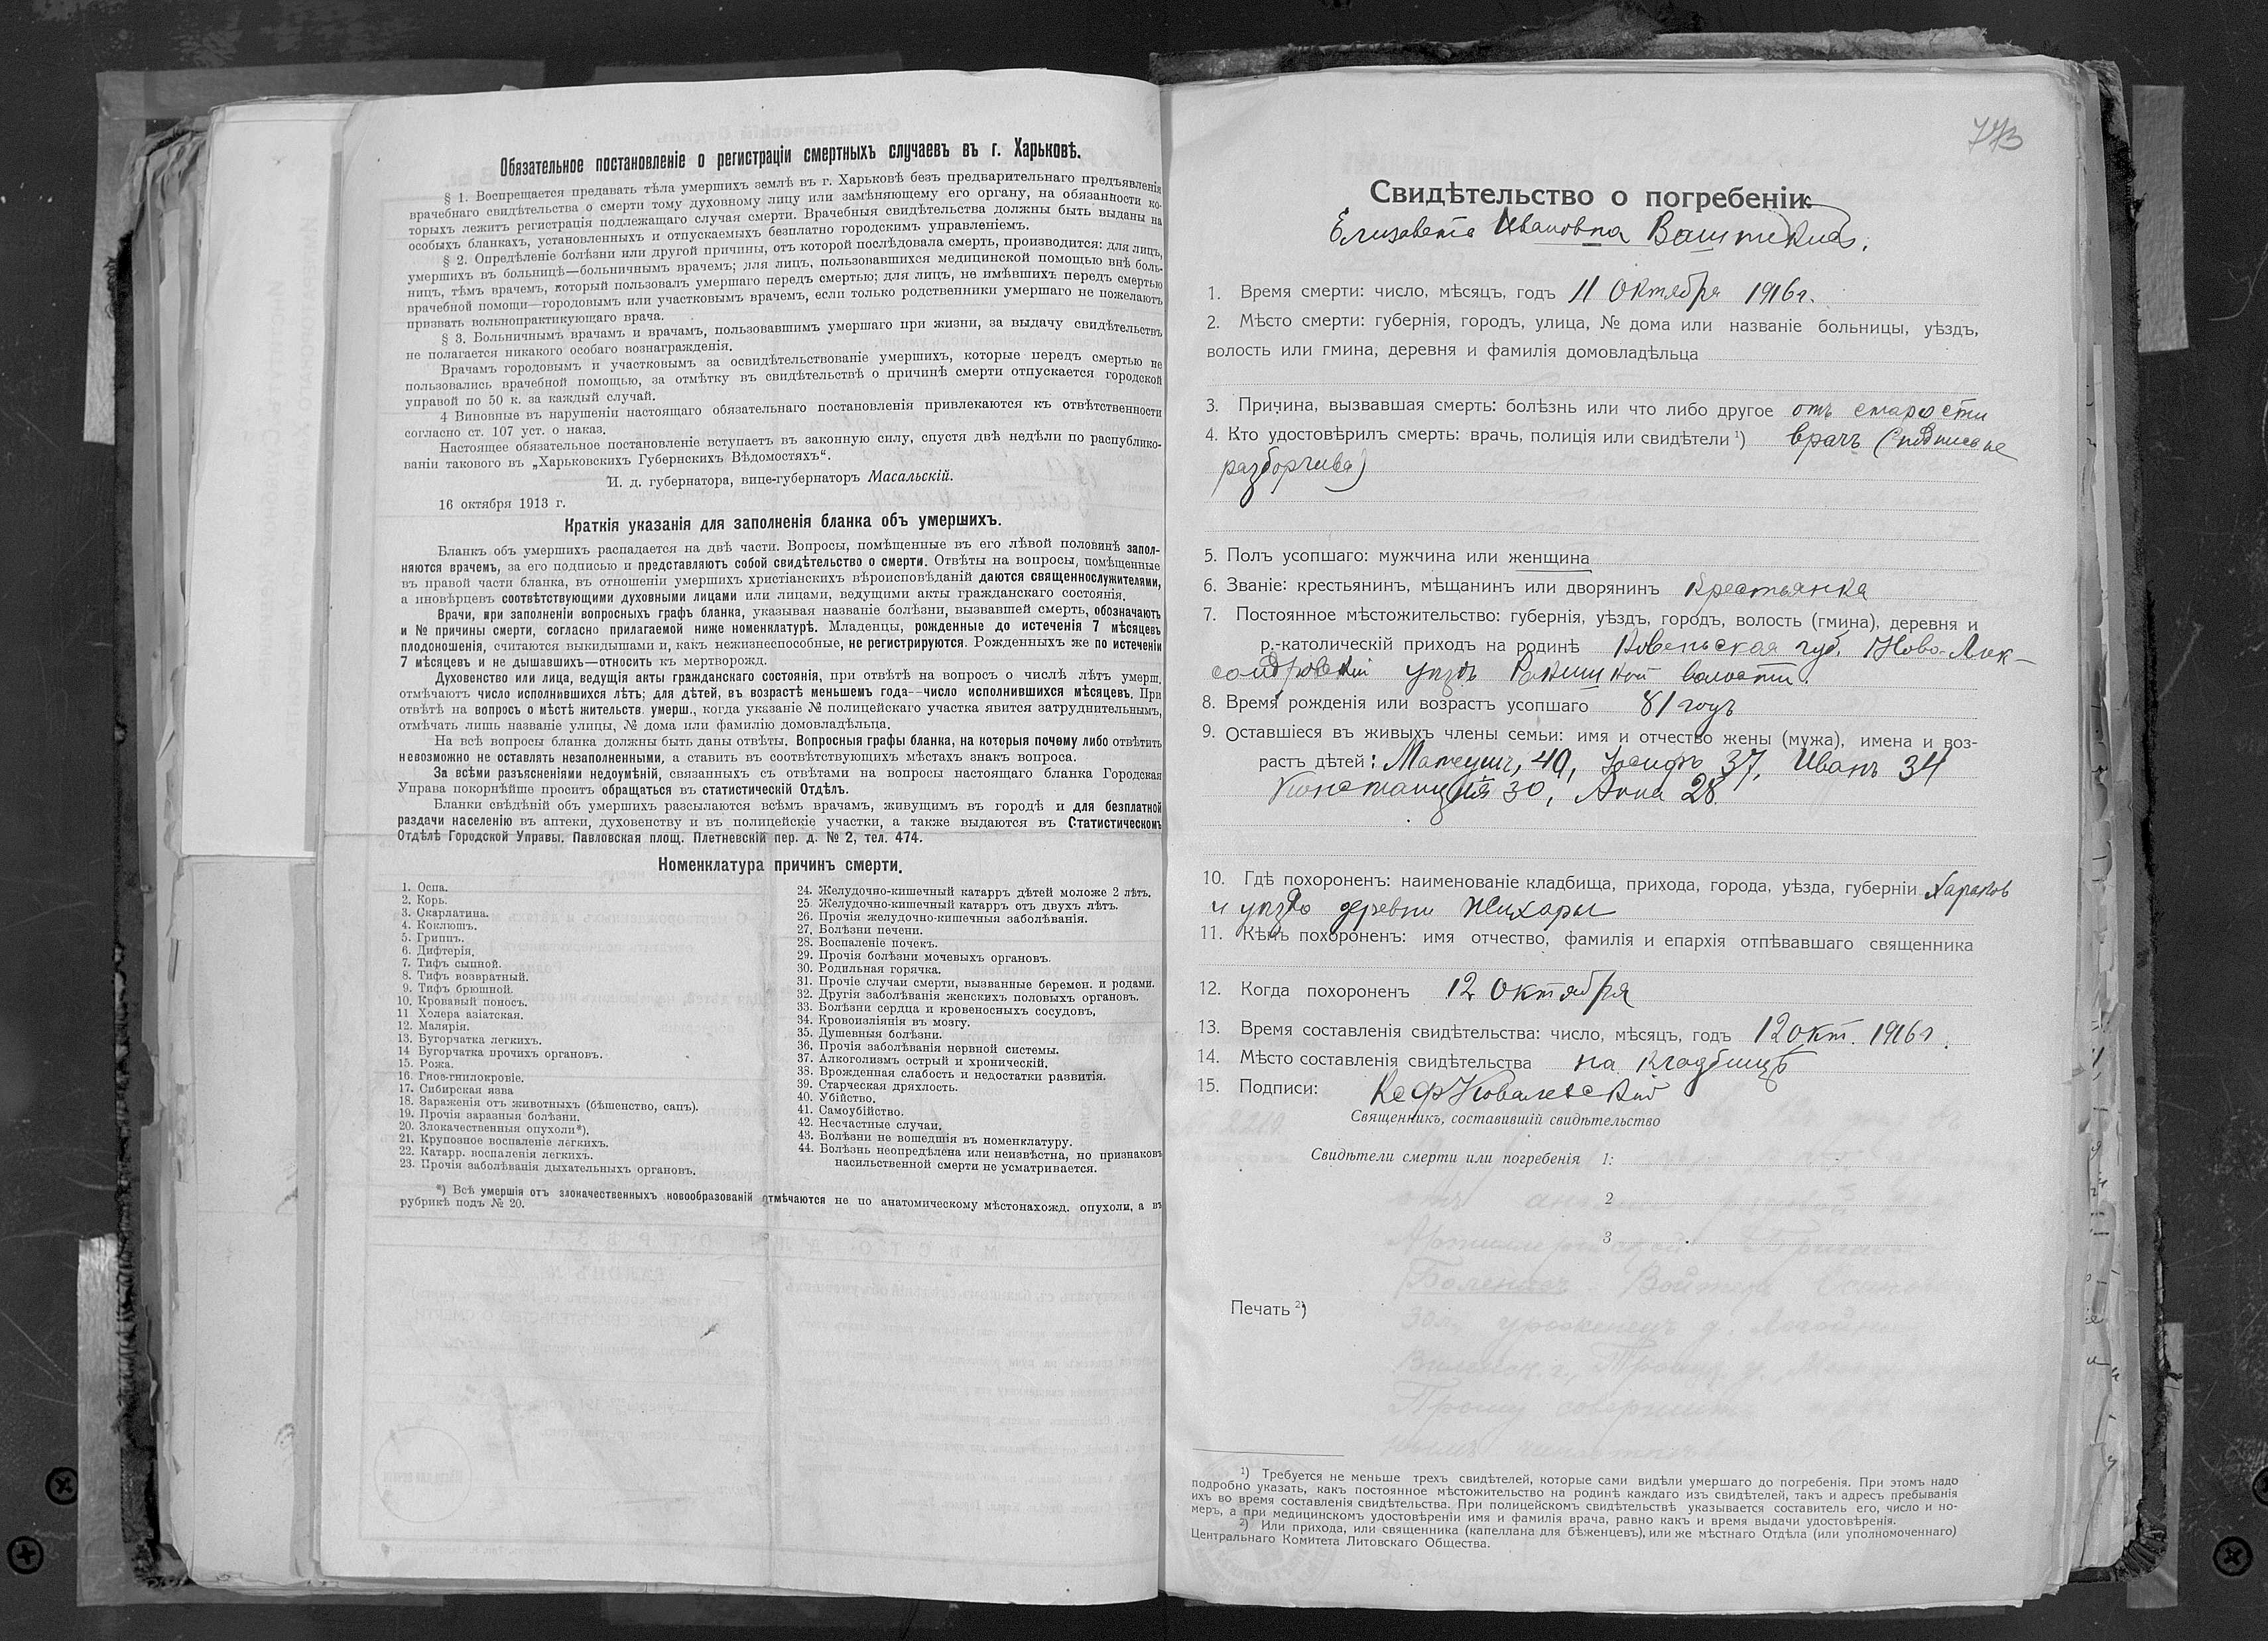 Обязательное постановленіе о регистраціи смертныхъ случаевъ въ г. Харьковѣ.
§ 1. Воспрещается предавать тѣла умершихъ землѣ въ г. Харьковѣ безъ предварительнаго предъявленія
врачебнаго свидѣтельства о смерти тому духовному лицу или замѣняющему его органу, на обязанности ко-
торыхъ лежитъ регистрація подлежащаго случая смерти. Врачебныя свидѣтельства должны быть выданы на
особыхъ бланкахъ, установленныхъ и отпускаемыхъ безплатно городскимъ управленіемъ.
§ 2. Опредѣленіе болѣзни или другой причины, отъ которой послѣдовала смерть, производится: для лицъ,
умершихъ въ больницѣ—больничнымъ врачемъ; для лицъ, пользовавшихся медицинской помощью внѣ боль-
ницъ, тѣмъ врачемъ, который пользовалъ умершаго передъ смертью; для лицъ, не имѣвшихъ передъ смертью
врачебной помощи—городовымъ или участковымъ врачемъ, если только родственники умершаго не пожелаютъ
призвать вольнопрактикующаго врача.
§ 3. Больничнымъ врачамъ и врачамъ, пользовавшимъ умершаго при жизни, за выдачу свидѣтельствъ
не полагается никакого особаго вознагражденія.
Врачамъ городовымъ и участковымъ за освидѣтельствованіе умершихъ, которые передъ смертью не
пользовались врачебной помощью, за отмѣтку въ свидѣтельствѣ о причинѣ смерти отпускается городской
управой по 50 к. за каждый случай.
4 Виновные въ нарушеніи настоящаго обязательнаго постановленія привлекаются къ отвѣтственности
согласно ст. 107 уст. о наказ.
Настоящее обязательное постановленіе вступаетъ въ законную силу, спустя двѣ недѣли по распублико-
ваніи такового въ „Харьковскихъ Губернскихъ Вѣдомостяхъ“.
И. д. губернатора, вице-губернаторъ Масальскій.
16 октября 1913 г.
Краткія указанія для заполненія бланка объ умершихъ.
Бланкъ объ умершихъ распадается на двѣ части. Вопросы, помѣщенные въ его лѣвой половинѣ запол-
няются врачемъ, за его подписью и представляютъ собой свидѣтельство о смерти. Отвѣты на вопросы, помѣщенные
въ правой части бланка, въ отношеніи умершихъ христіанскихъ вѣроисповѣданій даются священнослужителями,
а иновѣрцевъ соотвѣтствующими духовными лицами или лицами, ведущими акты гражданскаго состоянія.
Врачи, при заполненіи вопросныхъ графъ бланка, указывая названіе болѣзни, вызвавшей смерть, обозначаютъ
и № причины смерти, согласно прилагаемой ниже номенклатурѣ. Младенцы, рожденные до истеченія 7 мѣсяцевъ
плодоношенія, считаются выкидышами и, какъ нежизнеспособные, не регистрируются. Рожденныхъ же по истеченіи
7 мѣсяцевъ и не дышавшихъ—относить къ мертворожд.
Духовенство или лица, ведущія акты гражданскаго состоянія, при отвѣтѣ на вопросъ о числѣ лѣтъ умерш.
отмѣчаютъ число исполнившихся лѣтъ; для дѣтей, въ возрастѣ меньшемъ года—число исполнившихся мѣсяцевъ. При
отвѣтѣ на вопросъ о мѣстѣ жительств. умерш., когда указаніе № полицейскаго участка явится затруднительнымъ,
отмѣчать лишь названіе улицы, № дома или фамилію домовладѣльца.
На всѣ вопросы бланка должны быть даны отвѣты. Вопросныя графы бланка, на которыя почему либо отвѣтить
невозможно не оставлять незаполненными, а ставить въ соотвѣтствующихъ мѣстахъ знакъ вопроса.
За всѣми разъясненіями недоумѣній, связанныхъ съ отвѣтами на вопросы настоящаго бланка Городская
Управа покорнѣйше проситъ обращаться въ статистическій Отдѣлъ.
Бланки свѣдѣній объ умершихъ разсылаются всѣмъ врачамъ, живущимъ въ городѣ и для безплатной
раздачи населенію въ аптеки, духовенству и въ полицейскіе участки, а также выдаются въ Статистическомъ
Отдѣлѣ Городской Управы. Павловская площ. Плетневскій пер. д. № 2, тел. 474.
Номенклатура причинъ смерти.
1. Оспа.
2. Корь.
3. Скарлатина.
4. Коклюшъ.
5. Гриппъ.
6. Дифтерія.
7. Тифъ сыпной.
8. Тифъ возвратный.
9. Тифъ брюшной.
10. Кровавый поносъ.
11 Холера азіатская.
12. Малярія.
13. Бугорчатка легкихъ.
14 Бугорчатка прочихъ органовъ.
15. Рожа.
16. Гное-гнилокровіе.
17. Сибирская язва
18. Зараженія отъ животныхъ (бѣшенство, сапъ).
19. Прочія заразныя болѣзни.
20. Злокачественныя опухоли*).
21. Крупозное воспаленіе легкихъ.
22. Катарр. воспаленія легкихъ.
23. Прочія заболѣванія дыхательныхъ органовъ.
24. Желудочно-кишечный катарръ дѣтей моложе 2 лѣтъ.
25 Желудочно-кишечный катарръ отъ двухъ лѣтъ.
26. Прочія желудочно-кишечныя заболѣванія.
27. Болѣзни печени.
28. Воспаленіе почекъ.
29. Прочія болѣзни мочевыхъ органовъ.
30. Родильная горячка.
31. Прочіе случаи смерти, вызванные беремен. и родами.
32. Другія заболѣванія женскихъ половыхъ органовъ.
33. Болѣзни сердца и кровеносныхъ сосудовъ,
34. Кровоизліянія въ мозгу.
35. Душевныя болѣзни.
36. Прочія заболѣванія нервной системы.
37. Алкоголизмъ острый и хроническій.
38. Врожденная слабость и недостатки развитія.
39. Старческая дряхлость.
40. Убійство.
41. Самоубійство.
42. Несчастные случаи.
43. Болѣзни не вошедшія въ номенклатуру.
44. Болѣзнь неопредѣлена или неизвѣстна, но признаковъ
насильственной смерти не усматривается.
*) Всѣ умершія отъ злокачественныхъ новообразованій отмѣчаются не по анатомическому мѣстонахожд. опухоли, а въ
рубрикѣ подъ № 20.
773
Свидѣтельство о погребеніи
Елизавета Ивановна
1. Время смерти: число, мѣсяцъ, годъ 11 Октября 1916 г.
2. Мѣсто смерти: губернія, городъ, улица, № дома или названіе больницы, уѣздъ,
волость или гмина, деревня и фамилія домовладѣльца
3. Причина, вызвавшая смерть: болѣзнь или что либо другое отъ старости
4. Кто удостовѣрилъ смерть: врачь, полиція или свидѣтели ¹) врачъ (подпись не
разборчива)
5. Полъ усопшаго: мужчина или женщина
6. Званіе: крестьянинъ, мѣщанинъ или дворянинъ крестьянка
7. Постоянное мѣстожительство: губернія, уѣздъ, городъ, волость (гмина), деревня и
р.-католическій приходъ на родинѣ Ковеньская губ. Ново-Алек-
сандровскій уѣздъ волости.
8. Время рожденія или возрастъ усопшаго 81 годъ
9. Оставшіеся въ живыхъ члены семьи: имя и отчество жены (мужа), имена и воз-
растъ дѣтей: Матеушъ, 40, Іосифъ 37, Иванъ 34
Констанція 30, Анна 28
10. Гдѣ похороненъ: наименованіе кладбища, прихода, города, уѣзда, губерніи Харьков
й уѣздъ деревни Жихары
11. Кѣмъ похороненъ: имя отчество, фамилія и епархія отпѣвавшаго священника
12. Когда похороненъ 12 Октября
13. Время составленія свидѣтельства: число, мѣсяцъ, годъ 12 окт. 1916 г.
14. Мѣсто составленія свидѣтельства на кладбищѣ
15. Подписи: Кс Ф Ковалевскій
Священникъ, составившій свидѣтельство
Свидѣтели смерти или погребенія 1:
2
3
Печать ²)
¹) Требуется не меньше трехъ свидѣтелей, которые сами видѣли умершаго до погребенія. При этомъ надо
подробно указать, какъ постоянное мѣстожительство на родинѣ каждаго изъ свидѣтелей, такъ и адресъ пребыванія
ихъ во время составленія свидѣтельства. При полицейскомъ свидѣтельствѣ указывается составитель его, число и но-
меръ, а при медицинскомъ удостовѣреніи имя и фамилія врача, равно какъ и время выдачи удостовѣренія.
²) Или прихода, или священника (капеллана для бѣженцевъ), или же мѣстнаго Отдѣла (или уполномоченнаго)
Центральнаго Комитета Литовскаго Общества.